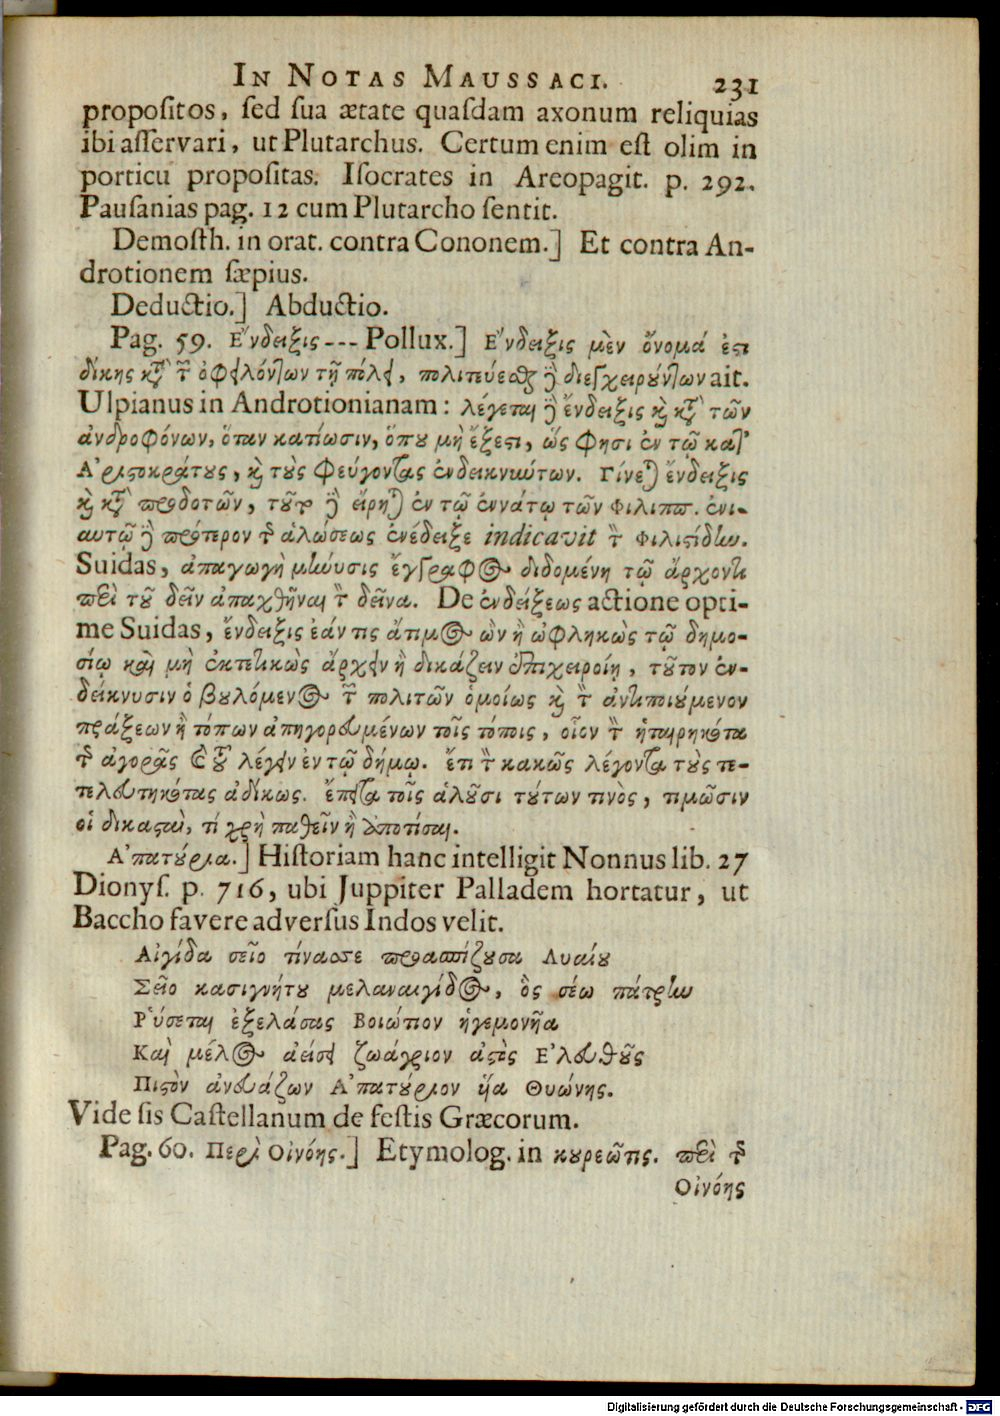 IN NOTAS MAUSSACI. 231
propositos, sed sua ætate quasdam axonum reliquias
ibi asservari, ut Plutarchus. Certum enim est olim in
porticu propositas. Isocrates in Areopagit. p. 292.
Pausanias pag. 12 cum Plutarcho sentit.
Demosth. in orat. contra Cononem.] Et contra An-
drotionem sæpius.
Deductio.] Abductio.
Pag. 59. Ἔνδειξις --- Pollux.] Ἔνδειξις μὲν ὄνομά ἐστι
δίκης κατὰ τῶν ὀφειλόντων τῇ πόλει, πολιτεύεσθαι δὲ διεγχειρούντων ait.
Ulpianus in Androtionianam: λέγεται δὲ ἔνδειξις καὶ κατὰ τῶν
ἀνδροφόνων, ὅταν κατίωσιν, ὅπου μὴ ἔξεστι, ὥς φησι ἐν τῷ κατ'
Ἀριστοκράτους, καὶ τοὺς φεύγοντας ἐνδεικνύντων. Γίνεται ἔνδειξις
καὶ κατὰ προδοτῶν, τοῦτο δὲ εἴρηται ἐν τῷ ἐννάτῳ τῶν Φιλιππ. ἐνι-
αυτῷ δὲ πρότερον τῆς ἁλώσεως ἐνέδειξε indicavit τὸν Φιλιστίδην.
Suidas, ἀπαγωγὴ μήνυσις ἔγγραφος διδομένη τῷ ἄρχοντι
περὶ τοῦ δεῖν ἀπαχθῆναι τὸν δεῖνα. De ἐνδείξεως actione opti-
me Suidas, ἔνδειξις ἐάν τις ἄτιμος ὢν ἢ ὠφληκὼς τῷ δημο-
σίῳ καὶ μὴ ἐκτετικὼς ἄρχειν ἢ δικάζειν ἐπιχειροίη, τοῦτον ἐν-
δείκνυσιν ὁ βουλόμενος τῶν πολιτῶν ὁμοίως καὶ τὸν ἀντιποιούμενον
πράξεων ἢ τόπων ἀπηγορευμένων τοῖς τόποις, οἷον τὸν ἡταιρηκότα
τῆς ἀγορᾶς καὶ τοῦ λέγειν ἐν τῷ δήμῳ. ἔτι τὸν κακῶς λέγοντα τοὺς τε-
τελευτηκότας ἀδίκως. ἔπειτα τοῖς ἁλοῦσι τούτων τινὸς, τιμῶσιν
οἱ δικασταὶ, τί χρὴ παθεῖν ἢ ἀποτίσαι.
Ἀπατούρια.] Historiam hanc intelligit Nonnus lib. 27
Dionys. p. 716, ubi Juppiter Palladem hortatur, ut
Baccho favere adversus Indos velit.
Αἰγίδα σεῖο τίναξε προασπίζουσα Λυαίου
Σεῖο κασιγνήτου μελαναιγίδος, ὃς σέω πάτρην
Ῥύσεται ἐξελάσας Βοιώτιον ἡγεμονῆα
Καὶ μέλος ἀείσει ζωάγριον ἀστὸς Ἐλευθοῦς
Πιστὸν ἀνευάζων Ἀπατούριον υἷα Θυώνης.
Vide sis Castellanum de festis Græcorum.
Pag. 60. Περὶ Οἰνόης.] Etymolog. in κουρεῶτις. περὶ τῆς
Οἰνόης
Digitalisierung gefördert durch die Deutsche Forschungsgemeinschaft - DFG